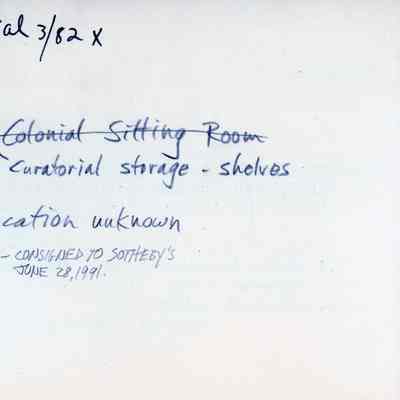 ial 3/82 x
Colonial Sitting Room
Curatorial storage - shelves
cation unknown
- CONSIGNED TO SOTHEBY'S
JUNE 28, 1991.